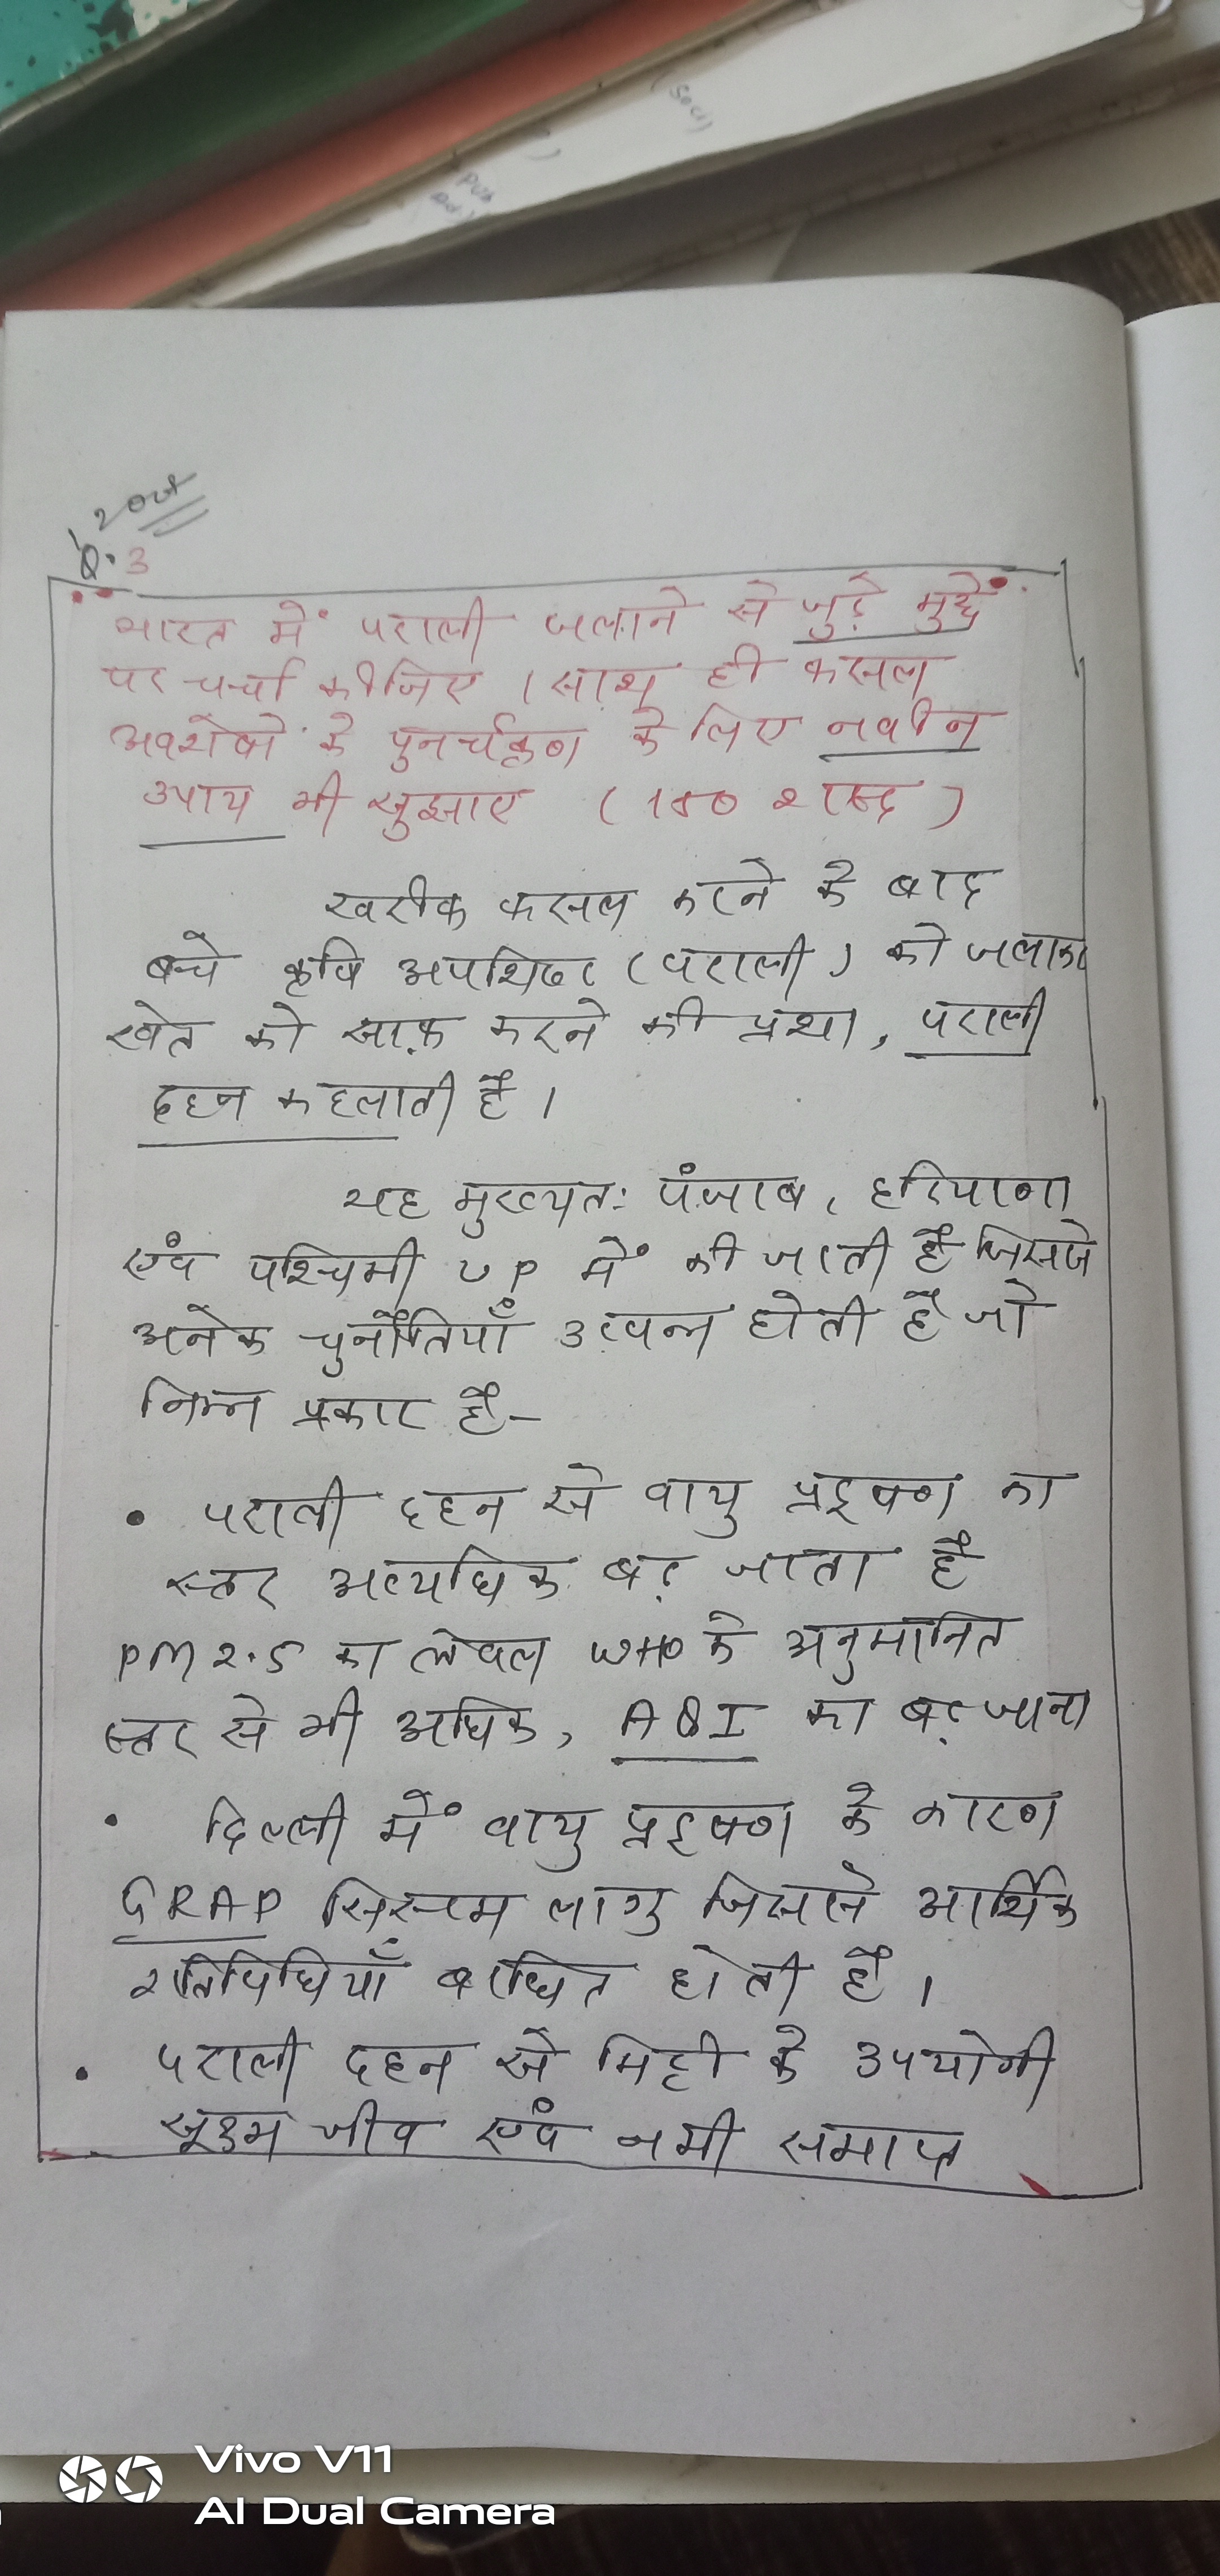 (Soci)
Pub
Ad.)
2 Oct
Q. 3
भारत में पराली जलाने से जुड़े मुद्दें
पर चर्चा कीजिए । साथ ही फसल
अवशेषों के पुनर्चक्रण के लिए नवीन
उपाय भी सुझाए (150 शब्द)
खरीफ फसल करने के बाद
बचे कृषि अपशिष्ट (पराली) को जलाकर
खेत को साफ़ करने की प्रथा, पराली
दहन कहलाती है ।
यह मुख्यत: पंजाब, हरियाणा
एंव पश्चिमी UP में की जाती है जिससे
अनेक चुनौतियाँ उत्पन्न होती है जो
निम्न प्रकार है-
• पराली दहन से वायु प्रदूषण का
स्तर अत्यधिक बढ़ जाता है
PM 2.5 का लेवल WHO के अनुमानित
स्तर से भी अधिक, AQI का बढ़ जाना
• दिल्ली में वायु प्रदूषण के कारण
GRAP सिस्तम लागु जिससे आर्थिक
गतिविधियाँ बाधित होती है ।
• पराली दहन से मिट्टी के उपयोगी
सूक्ष्म जीव एंव नमी समाप्त
Vivo V11
AI Dual Camera